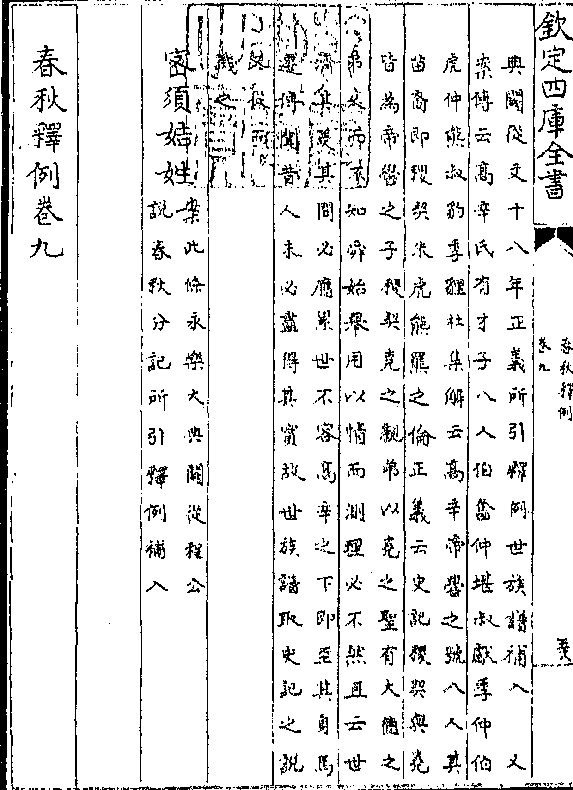 欽定四庫全書
春秋釋例
卷九
典闕從文十八年正義所引釋例世族譜補入　又
案傳云高辛氏有才子八人伯奮仲堪叔獻季仲伯
虎仲熊叔豹季貍杜集解云高辛帝嚳之號八人其
苗裔即稷契朱虎熊羆之倫正義云史記稷契與堯
皆為帝嚳之子稷契堯之親弟以堯之聖有大德之
弟久而不知舜始舉用以情而測理必不然且云世
濟其美其間必應累世不容高辛之下即至其身馬
遷傳聞昔人未必盡得其實故世族譜取史記之說
譏之
密須姞姓
案此條永樂大典闕從程公
說春秋分記所引釋例補入
春秋釋例卷九